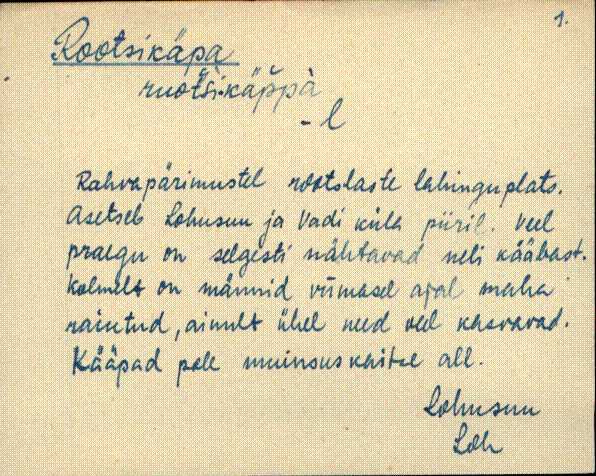 1.
Rootsikäpa
ruot̆śi-käp̆pà
- l
Rahvapärimustel rootslaste lahinguplats.
Asetseb Lohusuu ja Vadi küla piiril. Veel
praegu on selgesti nähtavad neli kääbast.
Kolmelt on männid viimasel ajal maha
raiutud, ainult ühel need veel kasvavad.
Kääpad pole muinsuskaitse all.
Lohusuu
Loh